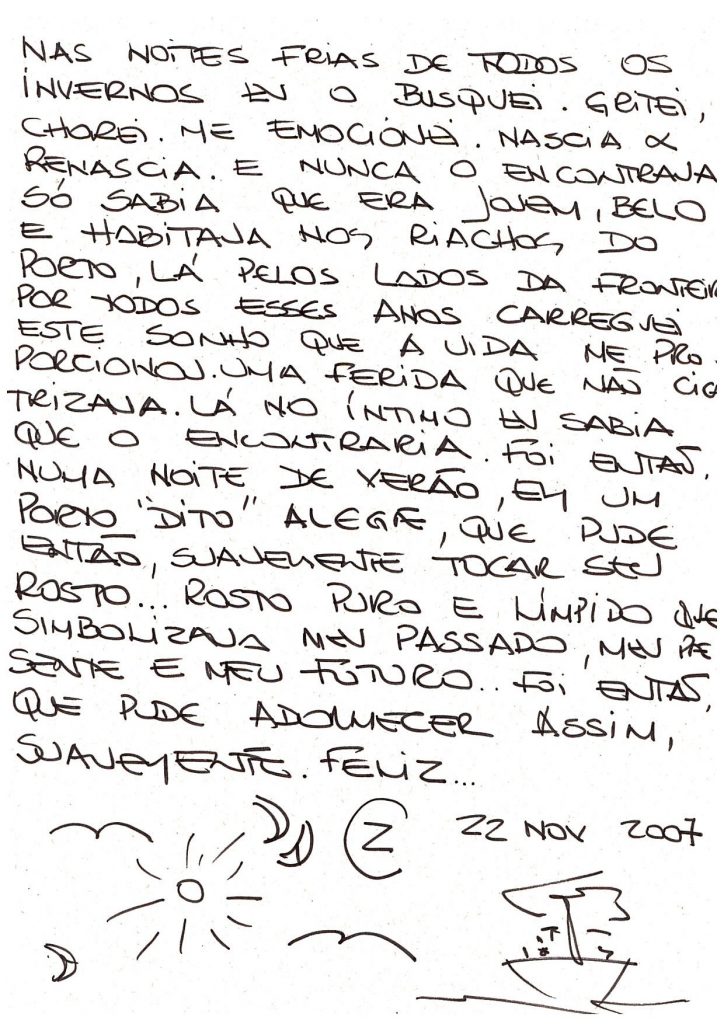 NAS NOITES FRIAS DE TODOS OS
INVERNOS EU O BUSQUEI. GRITEI,
CHOREI. ME EMOCIONEI. NASCIA E
RENASCIA. E NUNCA O ENCONTRAVA
SÓ SABIA QUE ERA JOVEM, BELO
E HABITAVA NOS RIACHOS DO
PORTO, LÁ PELOS LADOS DA FRONTEIR
POR TODOS ESSES ANOS CARREGUEI
ESTE SONHO QUE A VIDA ME PRO-
PORCIONOU. UMA FERIDA QUE NÃO CIC
TRIZAVA. LÁ NO ÍNTIMO EU SABIA
QUE O ENCONTRARIA. FOI ENTÃO,
NUMA NOITE DE VERÃO, EM UM
PORTO "DITO" ALEGRE, QUE PUDE
ENTÃO, SUAVEMENTE TOCAR SEU
ROSTO... ROSTO PURO E LÍMPIDO QUE
SIMBOLIZAVA MEU PASSADO, MEU PRE
SENTE E MEU FUTURO... FOI ENTÃO,
QUE PUDE ADORMECER ASSIM,
SUAVEMENTE. FELIZ...
Z 22 NOV 2007